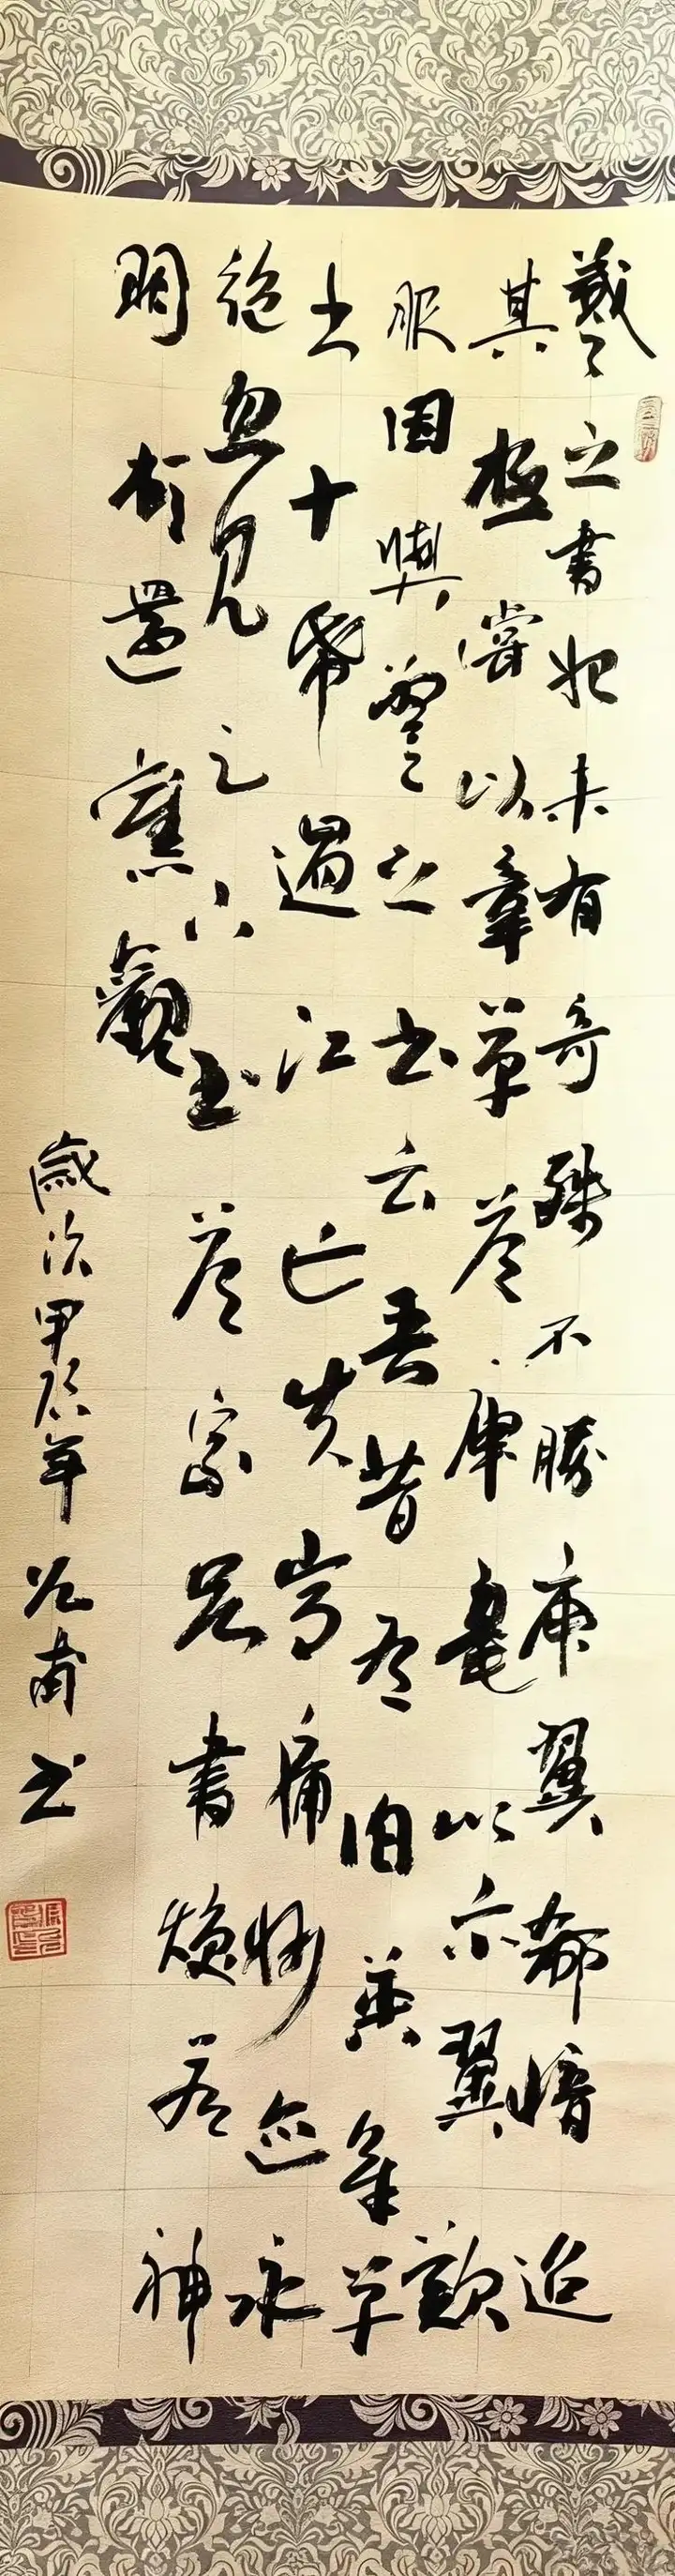 羲之書初未有奇殊不勝庾翼郗愔迨
其極嘗以章草答庾亮以示翼歎
服因與羲之书云吾昔有伯英章草
十帋過江亡失常痛妙迹永
絕忽見足下书答家兄書煥若神
明頓還舊觀
歲次甲辰年甫书